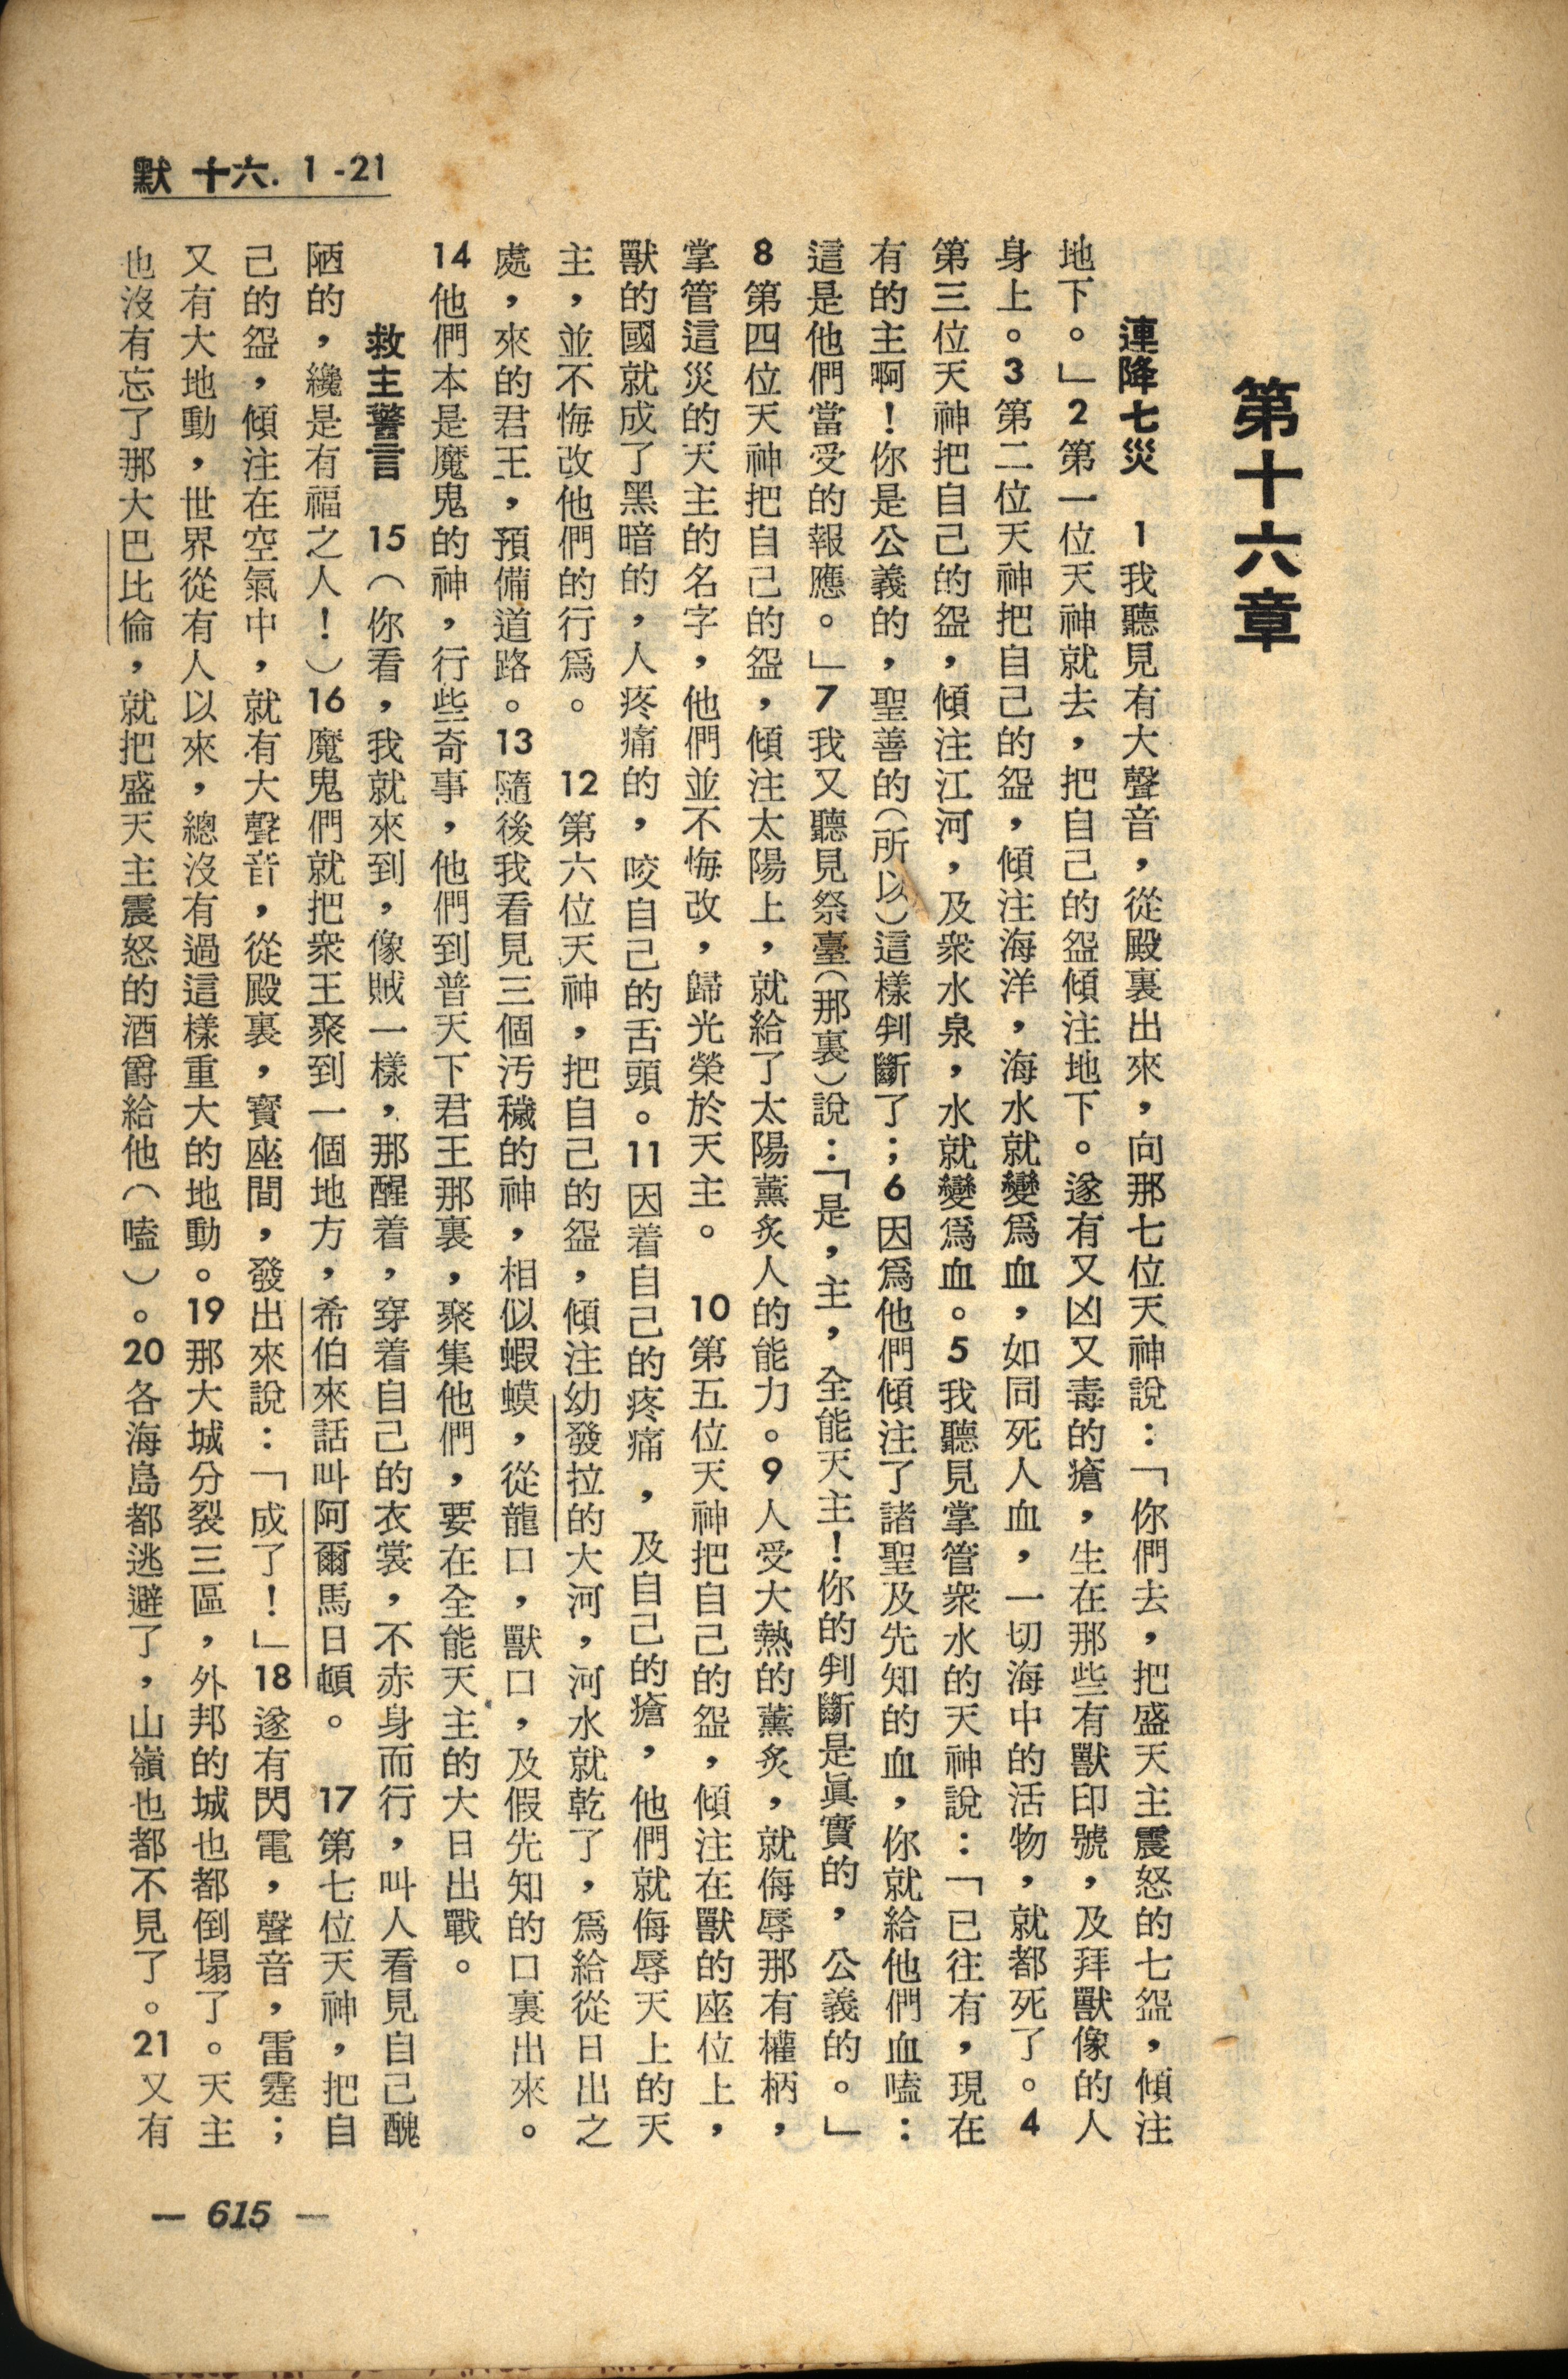 默 十六. 1 -21
第十六章
連降七災　1我聽見有大聲音，從殿裏出來，向那七位天神說：「你們去，把盛天主震怒的七盌，傾注
地下。」2第一位天神就去，把自己的盌傾注地下。遂有又凶又毒的瘡，生在那些有獸印號，及拜獸像的人
身上。3第二位天神把自己的盌，傾注海洋，海水就變爲血，如同死人血，一切海中的活物，就都死了。4
第三位天神把自己的盌，傾注江河，及衆水泉，水就變爲血。5我聽見掌管衆水的天神說：「已往有，現在
有的主啊！你是公義的，聖善的（所以）這樣判斷了；6因爲他們傾注了諸聖及先知的血，你就給他們血嗑：
這是他們當受的報應。」7我又聽見祭臺（那裏）說：「是，主，全能天主！你的判斷是眞實的，公義的。」
8第四位天神把自己的盌，傾注太陽上，就給了太陽薰炙人的能力。9人受大熱的薰炙，就侮辱那有權柄，
掌管這災的天主的名字，他們並不悔改，歸光榮於天主。　10第五位天神把自己的盌，傾注在獸的座位上，
獸的國就成了黑暗的，人疼痛的，咬自己的舌頭。11因着自己的疼痛，及自己的瘡，他們就侮辱天上的天
主，並不悔改他們的行爲。　12第六位天神，把自己的盌，傾注幼發拉的大河，河水就乾了，爲給從日出之
處，來的君王，預備道路。13隨後我看見三個汚穢的神，相似蝦蟆，從龍口，獸口，及假先知的口裏出來。
14他們本是魔鬼的神，行些奇事，他們到普天下君王那裏，聚集他們，要在全能天主的大日出戰。
救主警言　15（你看，我就來到，像賊一樣，那醒着，穿着自己的衣裳，不赤身而行，叫人看見自己醜
陋的，纔是有福之人！）16魔鬼們就把衆王聚到一個地方，希伯來話叫阿爾馬日頓。　17第七位天神，把自
己的盌，傾注在空氣中，就有大聲音，從殿裏，寶座間，發出來說：「成了！」18遂有閃電，聲音，雷霆；
又有大地動，世界從有人以來，總沒有過這樣重大的地動。19那大城分裂三區，外邦的城也都倒塌了。天主
也沒有忘了那大巴比倫，就把盛天主震怒的酒爵給他（嗑）。20各海島都逃避了，山嶺也都不見了。21又有
— 615 —